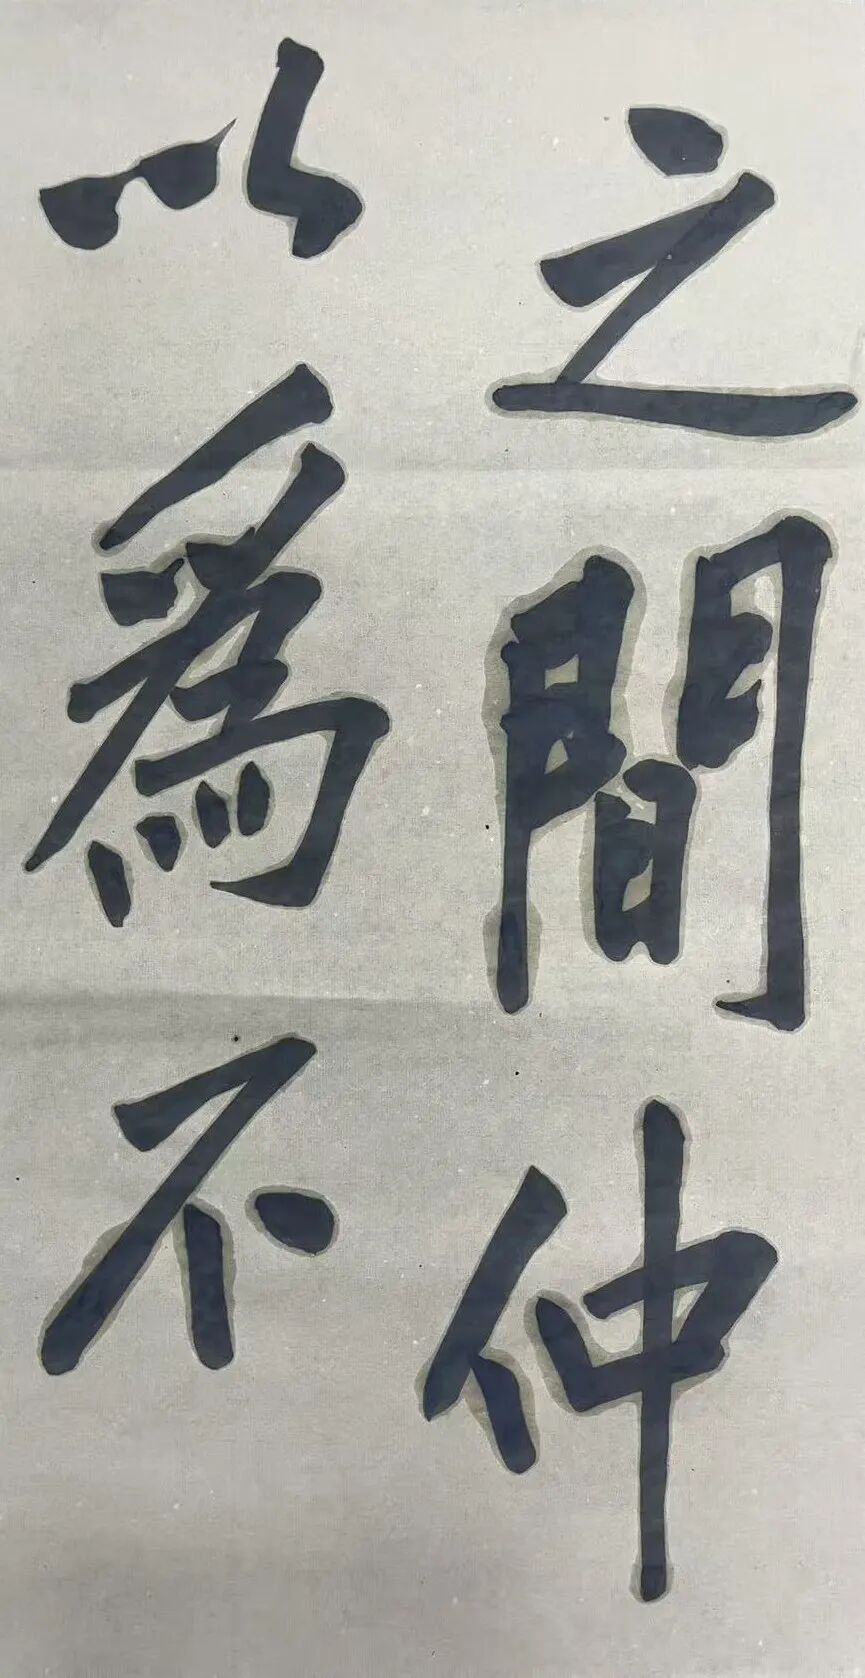 之間仲
以為不